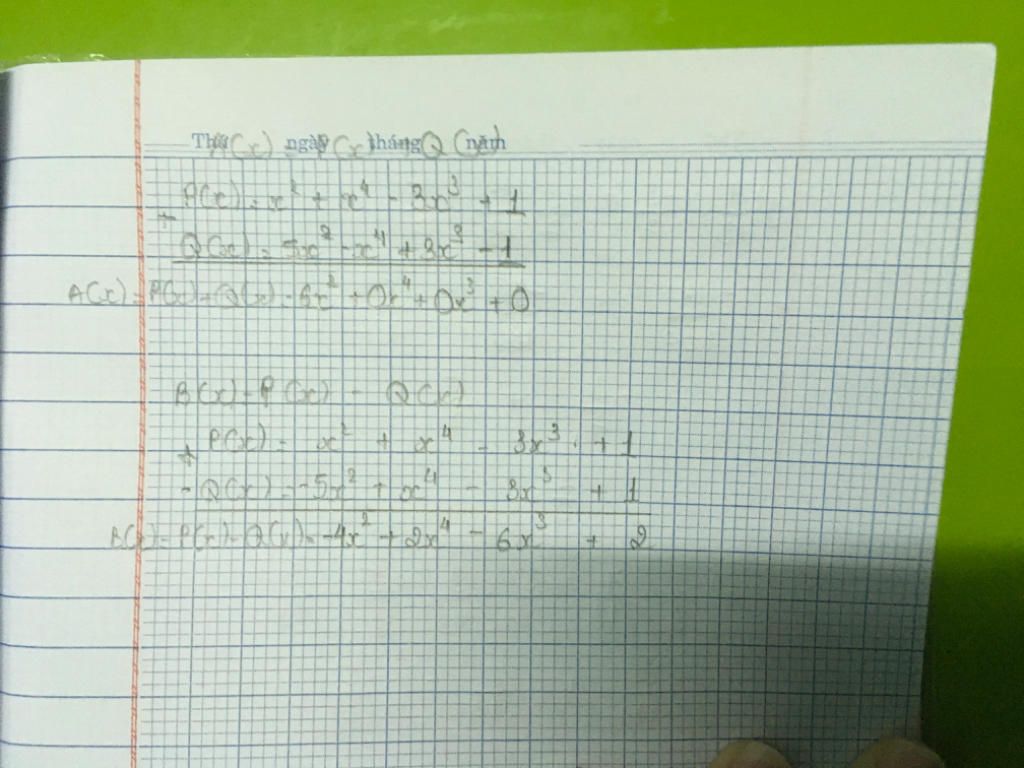 Thứ A(x) = ngày P(x) tháng Q(x) năm
P(x) = x² + x⁴ - 3x³ + 1
+
Q(x) = 5x² - x⁴ + 3x³ - 1
A(x) = P(x) + Q(x) = 6x² + 0x⁴ + 0x³ + 0
B(x) = P(x) - Q(x)
P(x) = x² + x⁴ - 3x³ + 1
+
-Q(x) = -5x² + x⁴ - 3x³ + 1
B(x) = P(x) - Q(x) = -4x² + 2x⁴ - 6x³ + 2